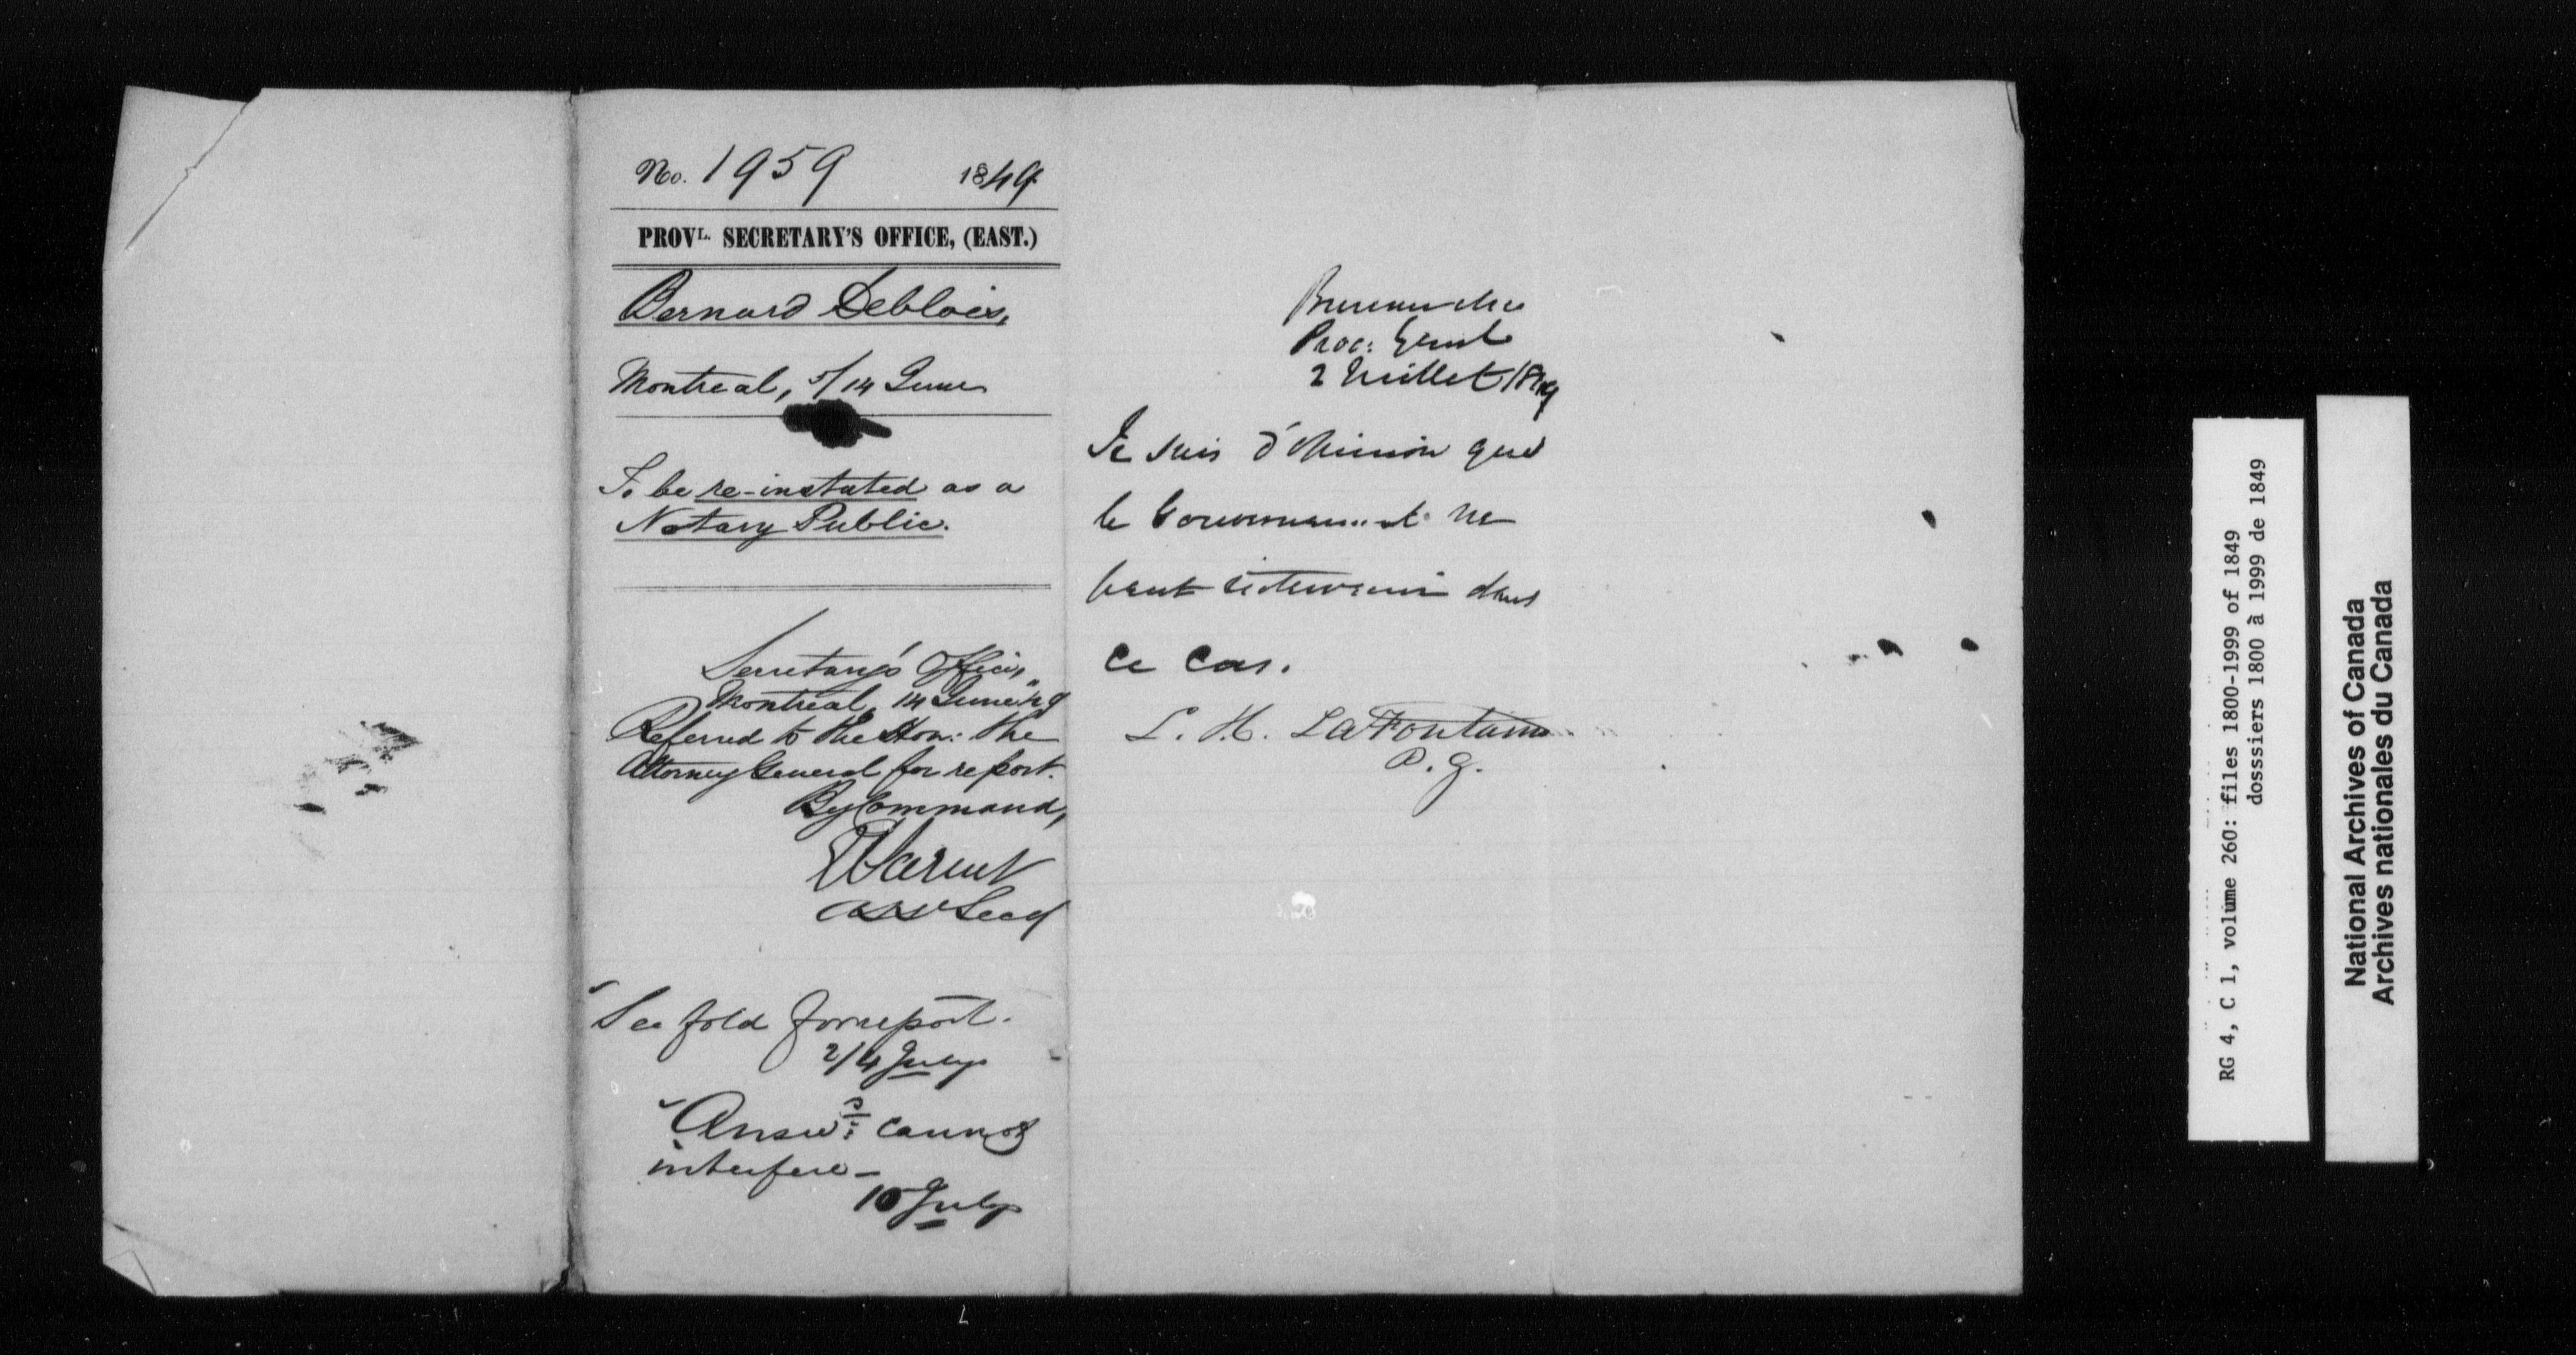 No. 1959 1849
PROVL. SECRETARY'S OFFICE, (EAST.)
Bernard Deblois,
Montreal, 5/14 June
To be re-instated as a
Notary Public.
Secretary's Office,
Montreal, 14 June 49
Referred to the Hon: the
Attorney General for report.
By Command,
E Parent
Asst Secy
See fold for report.
2/4 July
Answd: cannot
interfere –
10 July
Bureau du
Proc: Genl
2 Juillet 1849
Je suis d'opinion que
le Gouvernement ne
peut intervenir dans
ce cas.
L. H. LaFontaine
P. g.
RG 4, C 1, volume 260: files 1800-1999 of 1849
dosssiers 1800 à 1999 de 1849
National Archives of Canada
Archives nationales du Canada